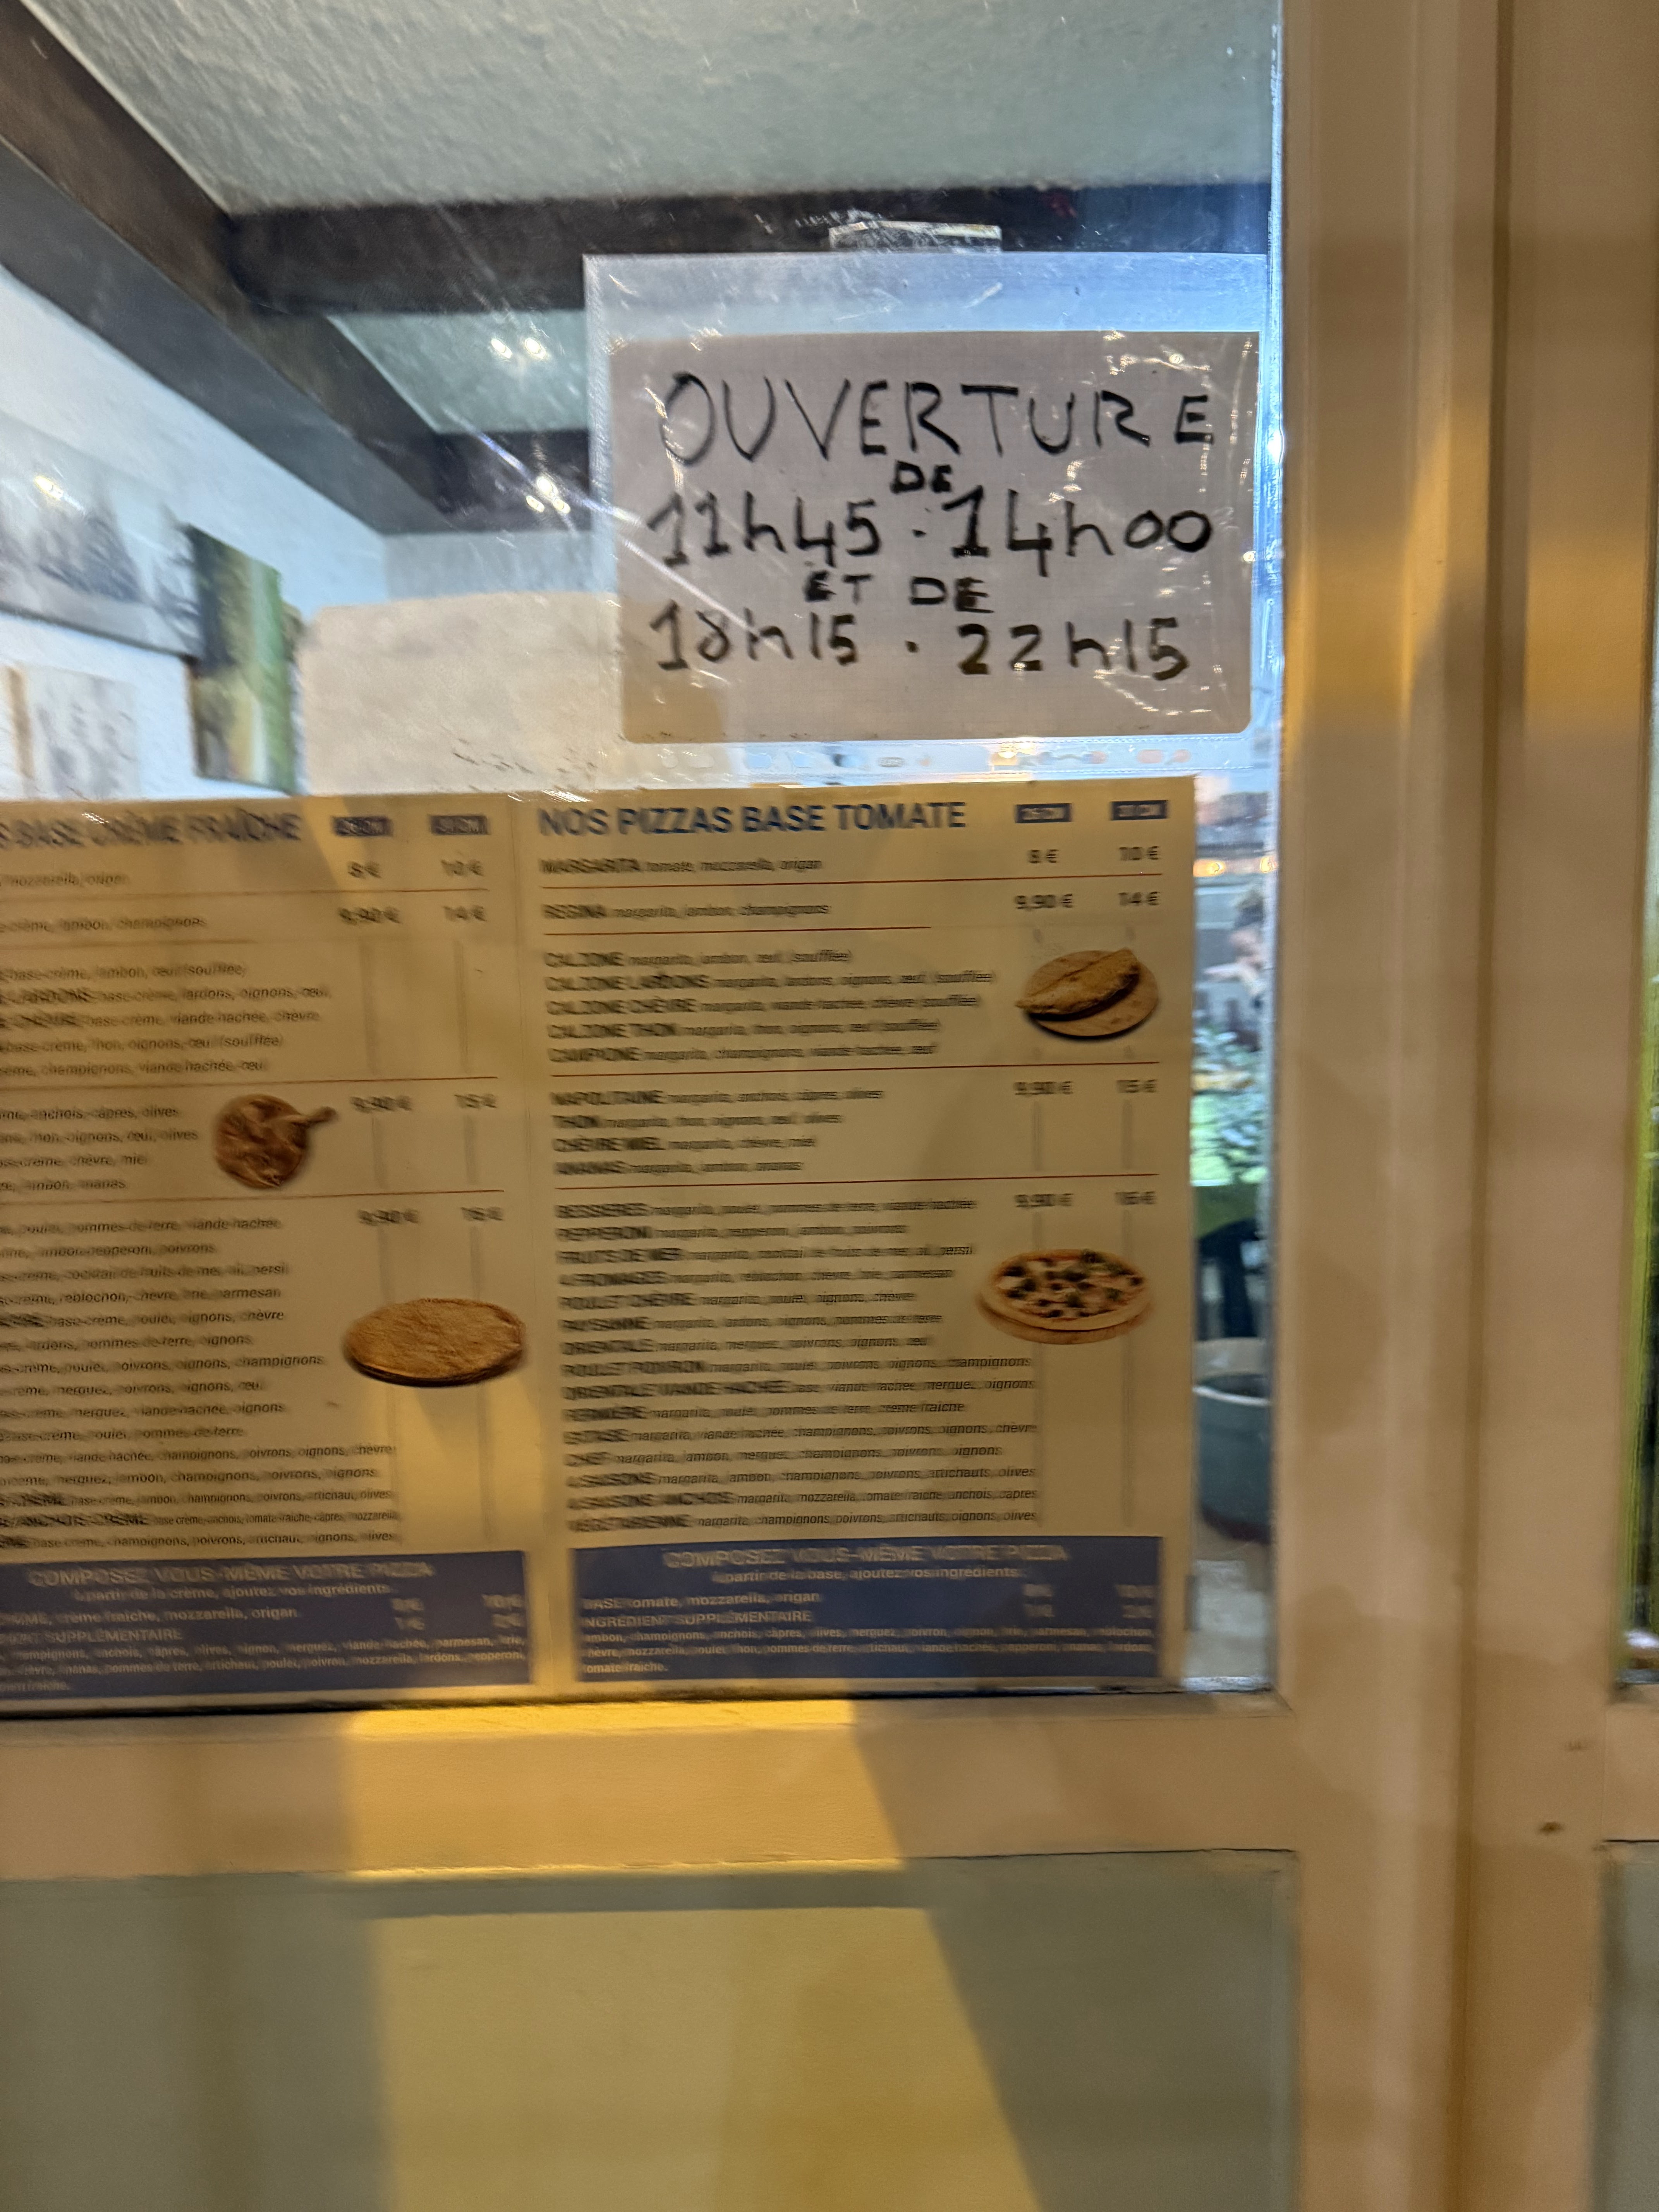 OUVERTURE
DE
11h45 · 14h00
ET DE
18h15 · 22h15
BASE CRÈME FRAÎCHE
8€ 10€
mozzarella, origan
9,90€ 14€
crème, jambon, champignons
base-crème, jambon, œuf (soufflée)
LARDONS base-crème, lardons, oignons, œuf,
CHÈVRE base-crème, viande hachée, chèvre
base-crème, thon, oignons, œuf (soufflée)
crème, champignons, viande hachée, œuf
9,90€ 15€
anchois, câpres, olives
thon, oignons, œuf, olives
crème, chèvre, miel
jambon, ananas
9,90€ 16€
poulet, pommes de terre, viande hachée
jambon pepperoni, poivrons
crème, cocktail de fruits de mer, ail, persil
crème, reblochon, chèvre, brie, parmesan
base-crème, poulet, oignons, chèvre
lardons, pommes de terre, oignons
crème, poulet, poivrons, oignons, champignons
crème, merguez, poivrons, oignons, œuf
crème, merguez, viande hachée, oignons
base-crème, poulet, pommes de terre
base-crème, viande hachée, champignons, poivrons, oignons, chèvre
merguez, jambon, champignons, poivrons, oignons
CRÈME base crème, jambon, champignons, poivrons, artichaut, olives
ANCHOIS CRÈME base crème, anchois, tomate fraîche, câpres, mozzarella
base crème, champignons, poivrons, artichaut, oignons, olives
COMPOSEZ VOUS-MÊME VOTRE PIZZA
à partir de la crème, ajoutez vos ingrédients.
crème fraîche, mozzarella, origan 8€ 10€
SUPPLÉMENTAIRE 1€ 2€
champignons, anchois, câpres, olives, oignon, merguez, viande hachée, parmesan, brie,
chèvre, ananas, pommes de terre, artichaut, poulet, poivron, mozzarella, lardons, pepperoni,
fraîche.
NOS PIZZAS BASE TOMATE
MARGARITA tomate, mozzarella, origan 8€ 10€
REGINA margarita, jambon, champignons 9,90€ 14€
CALZONE margarita, jambon, œuf (soufflée)
CALZONE LARDONS margarita, lardons, oignons, œuf (soufflée)
CALZONE CHÈVRE margarita, viande hachée, chèvre (soufflée)
CALZONE THON margarita, thon, oignons, œuf (soufflée)
CAMPIONE margarita, champignons, viande hachée, œuf
NAPOLITAINE margarita, anchois, câpres, olives 9,90€ 15€
THON margarita, thon, oignons, œuf, olives
CHÈVRE MIEL margarita, chèvre, miel
ANANAS margarita, jambon, ananas
BESSIERES margarita, poulet, pommes de terre, viande hachée 9,90€ 16€
PEPPERONI margarita, pepperoni, jambon, poivrons
FRUITS DE MER margarita, cocktail de fruits de mer, ail, persil
4 FROMAGES margarita, reblochon, chèvre, brie, parmesan
POULET CHÈVRE margarita, poulet, oignons, chèvre
PAYSANNE margarita, lardons, oignons, pommes de terre
ORIENTALE margarita, merguez, poivrons, oignons, œuf
POULET POIVRON margarita, poulet, poivrons, oignons, champignons
ORIENTALE VIANDE HACHÉE base, viande hachée, merguez, oignons
FERMIÈRE margarita, poulet, pommes de terre, crème fraîche
EXTASE margarita, viande hachée, champignons, poivrons, oignons, chèvre
CHEF margarita, jambon, merguez, champignons, poivrons, oignons
4 SAISONS margarita, jambon, champignons, poivrons, artichauts, olives
4 SAISONS ANCHOIS margarita, mozzarella, tomate fraîche, anchois, câpres
VÉGÉTARIENNE margarita, champignons, poivrons, artichauts, oignons, olives
COMPOSEZ VOUS-MÊME VOTRE PIZZA
à partir de la base, ajoutez vos ingrédients.
BASE tomate, mozzarella, origan 8€ 10€
INGRÉDIENT SUPPLÉMENTAIRE 1€ 2€
jambon, champignons, anchois, câpres, olives, merguez, poivron, oignon, brie, parmesan, reblochon,
chèvre, mozzarella, poulet, thon, pommes de terre, artichaut, viande hachée, pepperoni, ananas, lardons,
tomate fraîche.